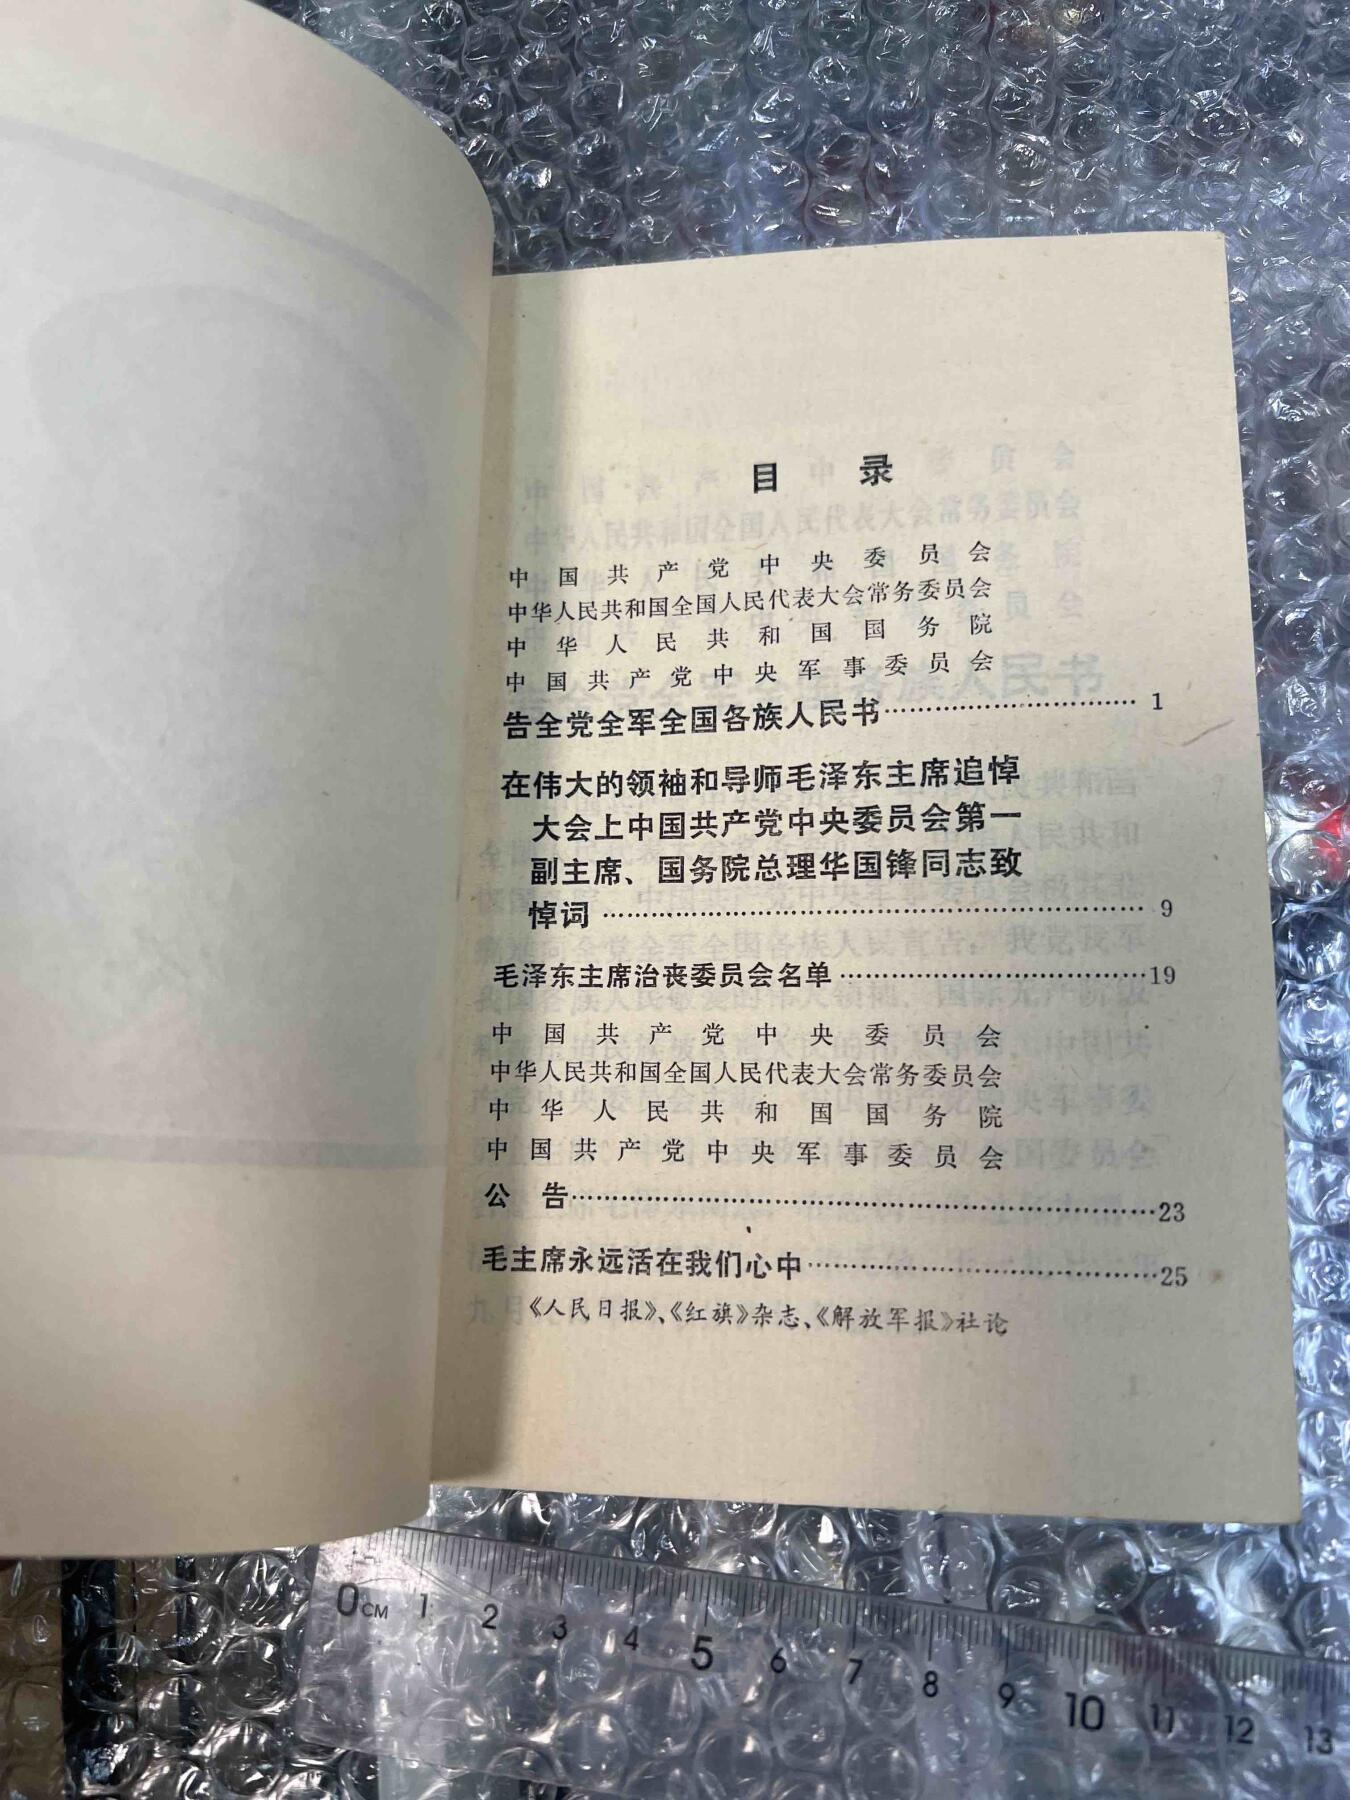 目录
中国共产党中央委员会
中华人民共和国全国人民代表大会常务委员会
中华人民共和国国务院
中国共产党中央军事委员会
告全党全军全国各族人民书…………………………1
在伟大的领袖和导师毛泽东主席追悼
大会上中国共产党中央委员会第一
副主席、国务院总理华国锋同志致
悼词…………………………………………………9
毛泽东主席治丧委员会名单……………………………19
中国共产党中央委员会
中华人民共和国全国人民代表大会常务委员会
中华人民共和国国务院
中国共产党中央军事委员会
公告……………………………………………………23
毛主席永远活在我们心中………………………………25
《人民日报》、《红旗》杂志、《解放军报》社论
0CM 1 2 3 4 5 6 7 8 9 10 11 12 13